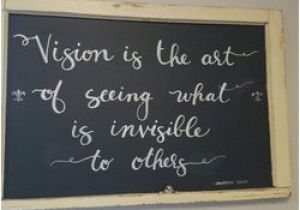 Vision is the art
of seeing what
is invisible
to others